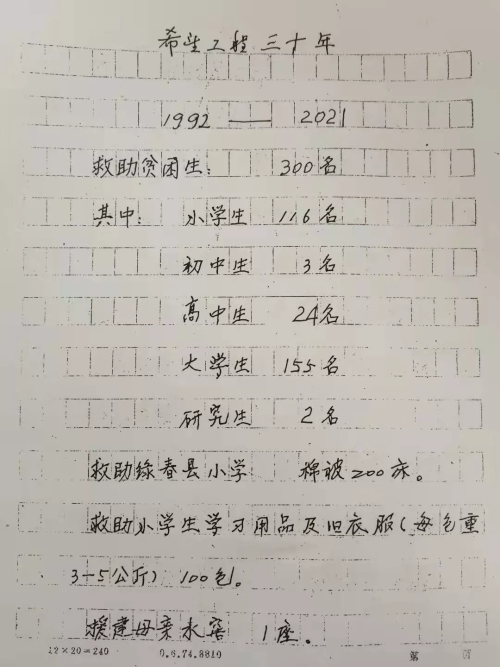 希望工程三十年
1992 —— 2021
救助贫困生: 300名
其中: 小学生 116名
初中生 3名
高中生 24名
大学生 155名
研究生 2名
救助绿春县小学 棉被200床。
救助小学生学习用品及旧衣服(每包重
3-5公斤) 100包。
援建母亲水窖 1座。
12×20=240 0.6.74.8810 第 页